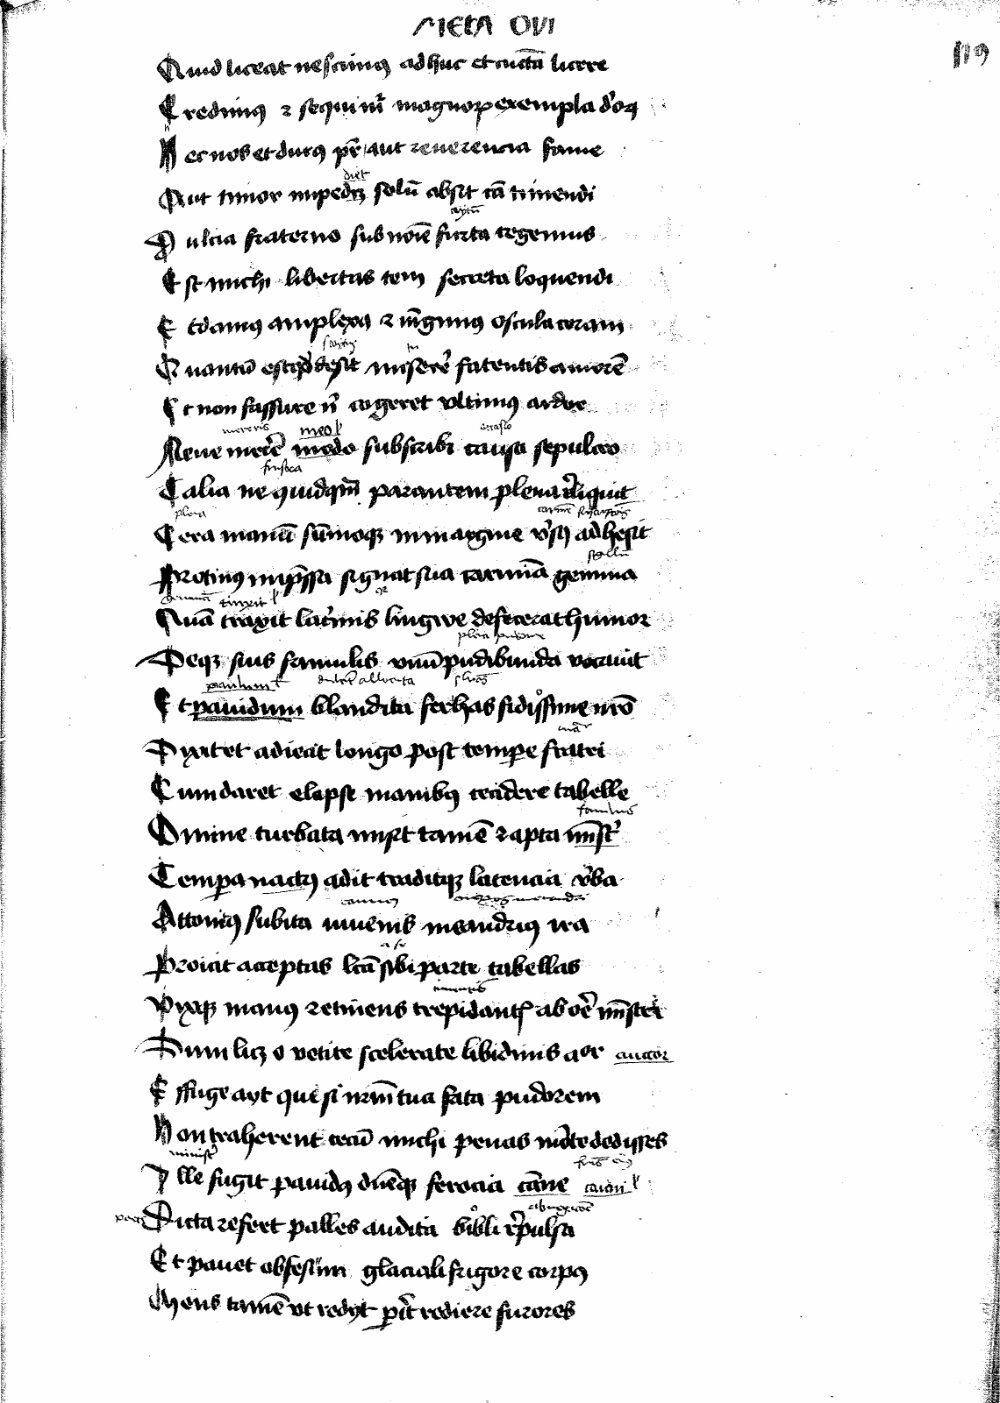 META OVI
119
Quid liceat nescimus adhuc et cuncta licere
Credimus et sequimur magnorum exempla deorum
Nec nos et durus pater aut reverencia fame
Aut timor impediet solum absit causa timendi
Dulcia fraterno sub nomine furta tegemus
Est michi libertas tecum secreta loquendi
Et damus amplexus et iungimus oscula coram
Quantum est quod desit miserere fatentis amorem
Et non fassure nisi cogeret ultimus ardor
Neve merere meo subscribi causa sepulcro
Talia nequidquam parantem plena reliquit
Cera manum summusque in margine versus adhesit
Protinus impressa signat sua carmina gemma
Quam traxit lacrimis lingwe defecerat humor
Deque suis famulis unum pudibunda vocavit
Et pavidum blandita fer has fidissime nostro
Dixit et adiecit longo post tempore fratri
Cum daret elapse manibus cecidere tabelle
Omine turbata misit tamen et apta minister
Tempora nactus adit traditque latencia verba
Attonitus subita iuvenis meandrius ira
Proicit acceptas lecta sibi parte tabellas
Vixque manus retinens trepidantis ab ore ministri
Dum licet o vetite scelerate libidinis auctor
Effuge ayt que si nostrum tua fata pudorem
Non traherent tecum michi penas morte dedisses
Ille fugit pavidus domineque ferocia
Dicta refert palles audita bibli repulsa
Et pavet obsessum glaciali frigore corpus
Mens tamen ut redyt pariter rediere furores